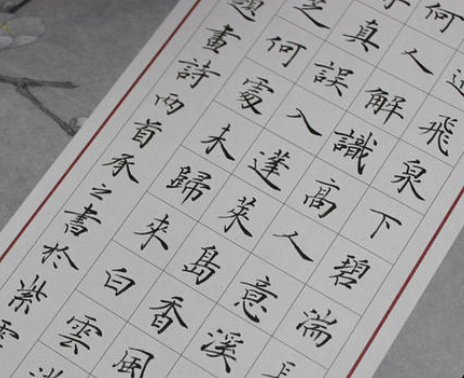 飛泉下碧湍
何人解識高人意溪
真誤入蓬萊島香風
芝何處未歸來白雲
題畫詩兩首承之書於紫雲